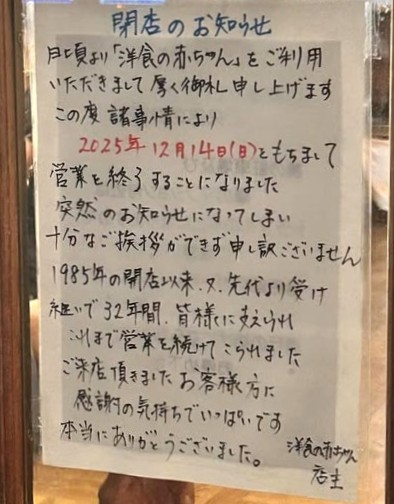 閉店のお知らせ
日頃より「洋食の赤ちゃん」をご利用
いただきまして厚く御礼申し上げます
この度 諸事情により
2025年12月14日(日)ともちまして
営業を終了することになりました
突然のお知らせになってしまい
十分なご挨拶ができず申し訳ございません
1985年の開店以来、又、先代より受け
継いで32年間、皆様に支えられ
これまで営業を続けてこられました
ご来店頂きましたお客様方に
感謝の気持ちでいっぱいです
本当にありがとうございました。
洋食の赤ちゃん
店主